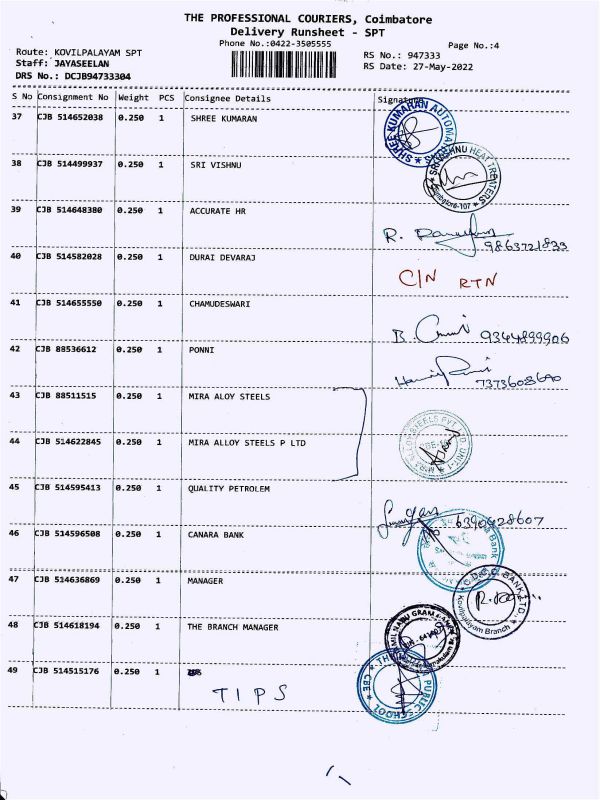 THE PROFESSIONAL COURIERS, Coimbatore
Delivery Runsheet - SPT
Phone No.:0422-3505555
Page No.:4
Route: KOVILPALAYAM SPT
RS No.: 947333
Staff: JAYASEELAN
RS Date: 27-May-2022
DRS No.: DCJB94733304
S No Consignment No Weight PCS Consignee Details Signature
37 CJB 514652038 0.250 1 SHREE KUMARAN
SHREE KUMARAN AUTOMA
38 CJB 514499937 0.250 1 SRI VISHNU
SRI VISHNU HEAT TREATERS
39 CJB 514648380 0.250 1 ACCURATE HR
R.
9863721833
40 CJB 514582028 0.250 1 DURAI DEVARAJ
C/N RTN
41 CJB 514655550 0.250 1 CHAMUDESWARI
B. 9344899906
42 CJB 88536612 0.250 1 PONNI
7373608690
43 CJB 88511515 0.250 1 MIRA ALOY STEELS
44 CJB 514622845 0.250 1 MIRA ALLOY STEELS P LTD
45 CJB 514595413 0.250 1 QUALITY PETROLEM
6390428607
46 CJB 514596508 0.250 1 CANARA BANK
Bank
47 CJB 514636869 0.250 1 MANAGER
BANK LTD
Kovilpalayam Branch
48 CJB 514618194 0.250 1 THE BRANCH MANAGER
49 CJB 514515176 0.250 1
TIPS
PUBLIC SCHOOL
CBE